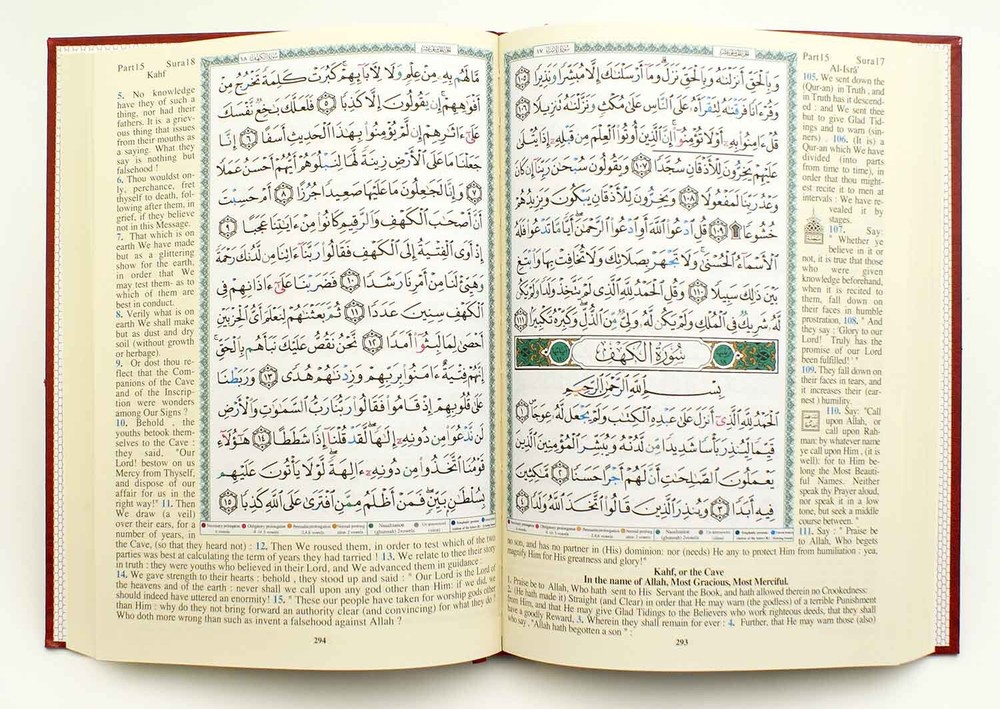 Part15 Sura17
Al-Isrâ'
105. We sent down the
(Qur-an) in Truth, and
in Truth has it descend-
ed : and We sent thee
but to give Glad Tid-
ings and to warn (sin-
ners) . 106. (It is) a
Qur-an which We have
divided (into parts
from time to time), in
order that thou might-
est recite it to men at
intervals : We have re-
vealed it by
stages.
107. Say:
" Whether ye
believe in it or
not, it is true that those
who were given
knowledge beforehand,
when it is recited to
them, fall down on
their faces in humble
prostration, 108. " And
they say : Glory to our
Lord! Truly has the
promise of our Lord
been fulfilled! ' "
109. They fall down on
their faces in tears, and
it increases their (ear-
nest ) humility.
110. Say: "Call
upon Allah, or
call upon Rah-
man: by whatever name
ye call upon Him , (it is
well): for to Him be-
long the Most Beauti-
ful Names. Neither
speak thy Prayer aloud,
nor speak it in a low
tone, but seek a middle
course between. "
111. Say : " Praise be
to Allah, Who begets
no son, and has no partner in (His) dominion: nor (needs) He any to protect Him from humiliation : yea,
magnify Him for His greatness and glory!"
وَبِٱلْحَقِّ أَنزَلْنَٰهُ وَبِٱلْحَقِّ نَزَلَ وَمَآ أَرْسَلْنَٰكَ إِلَّا مُبَشِّرًا وَنَذِيرًا ١٠٥
وَقُرْءَانًا فَرَقْنَٰهُ لِتَقْرَأَهُۥ عَلَى ٱلنَّاسِ عَلَىٰ مُكْثٍ وَنَزَّلْنَٰهُ تَنزِيلًا ١٠٦
قُلْ ءَامِنُوا۟ بِهِۦٓ أَوْ لَا تُؤْمِنُوٓا۟ إِنَّ ٱلَّذِينَ أُوتُوا۟ ٱلْعِلْمَ مِن قَبْلِهِۦٓ إِذَا يُتْلَىٰ
عَلَيْهِمْ يَخِرُّونَ لِلْأَذْقَانِ سُجَّدًا ١٠٧ وَيَقُولُونَ سُبْحَٰنَ رَبِّنَآ إِن كَانَ
وَعْدُ رَبِّنَا لَمَفْعُولًا ١٠٨ وَيَخِرُّونَ لِلْأَذْقَانِ يَبْكُونَ وَيَزِيدُهُمْ
خُشُوعًا ۩ ١٠٩ قُلِ ٱدْعُوا۟ ٱللَّهَ أَوِ ٱدْعُوا۟ ٱلرَّحْمَٰنَ أَيًّا مَّا تَدْعُوا۟ فَلَهُ
ٱلْأَسْمَآءُ ٱلْحُسْنَىٰ وَلَا تَجْهَرْ بِصَلَاتِكَ وَلَا تُخَافِتْ بِهَا وَٱبْتَغِ
بَيْنَ ذَٰلِكَ سَبِيلًا ١١٠ وَقُلِ ٱلْحَمْدُ لِلَّهِ ٱلَّذِى لَمْ يَتَّخِذْ وَلَدًا وَلَمْ يَكُن
لَّهُۥ شَرِيكٌ فِى ٱلْمُلْكِ وَلَمْ يَكُن لَّهُۥ وَلِىٌّ مِّنَ ٱلذُّلِّ وَكَبِّرْهُ تَكْبِيرًا ١١١
سُورَةُ الكَهْفِ
بِسْمِ ٱللَّهِ ٱلرَّحْمَٰنِ ٱلرَّحِيمِ
ٱلْحَمْدُ لِلَّهِ ٱلَّذِىٓ أَنزَلَ عَلَىٰ عَبْدِهِ ٱلْكِتَٰبَ وَلَمْ يَجْعَل لَّهُۥ عِوَجَا ١
قَيِّمًا لِّيُنذِرَ بَأْسًا شَدِيدًا مِّن لَّدُنْهُ وَيُبَشِّرَ ٱلْمُؤْمِنِينَ ٱلَّذِينَ
يَعْمَلُونَ ٱلصَّٰلِحَٰتِ أَنَّ لَهُمْ أَجْرًا حَسَنًا ٢ مَّٰكِثِينَ
فِيهِ أَبَدًا ٣ وَيُنذِرَ ٱلَّذِينَ قَالُوا۟ ٱتَّخَذَ ٱللَّهُ وَلَدًا ٤
Kahf, or the Cave
In the name of Allah, Most Gracious, Most Merciful.
1. Praise be to Allah, Who hath sent to His Servant the Book, and hath allowed therein no Crookedness:
2. (He hath made it) Straight (and Clear) in order that He may warn (the godless) of a terrible Punishment
from Him, and that He may give Glad Tidings to the Believers who work righteous deeds, that they shall
have a goodly Reward, 3. Wherein they shall remain for ever : 4. Further, that He may warn those (also)
who say , "Allah hath begotten a son " :
293
Part15 Sura18
Kahf
5. No knowledge
have they of such a
thing, nor had their
fathers. It is a griev-
ous thing that issues
from their mouths as
a saying. What they
say is nothing but
falsehood !
6. Thou wouldst on-
ly, perchance, fret
thyself to death, fol-
lowing after them, in
grief, if they believe
not in this Message.
7. That which is on
earth We have made
but as a glittering
show for the earth,
in order that We
may test them- as to
which of them are
best in conduct.
8. Verily what is on
earth We shall make
but as dust and dry
soil (without growth
or herbage).
9. Or dost thou re-
flect that the Com-
panions of the Cave
and of the Inscrip-
tion were wonders
among Our Signs ?
10. Behold , the
youths betook them-
selves to the Cave :
they said, "Our
Lord! bestow on us
Mercy from Thyself,
and dispose of our
affair for us in the
right way!" 11. Then
We draw (a veil)
over their ears, for a
number of years, in
the Cave, (so that they heard not) : 12. Then We roused them, in order to test which of the two
parties was best at calculating the term of years they had tarried ! 13. We relate to thee their story
in truth : they were youths who believed in their Lord, and We advanced them in guidance :
14. We gave strength to their hearts : behold , they stood up and said : " Our Lord is the Lord of
the heavens and of the earth : never shall we call upon any god other than Him: if we did, we
should indeed have uttered an enormity! 15. " These our people have taken for worship gods other
than Him : why do they not bring forward an authority clear (and convincing) for what they do?
Who doth more wrong than such as invent a falsehood against Allah ?
مَّا لَهُم بِهِۦ مِنْ عِلْمٍ وَلَا لِءَابَآئِهِمْ كَبُرَتْ كَلِمَةً تَخْرُجُ مِنْ
أَفْوَٰهِهِمْ إِن يَقُولُونَ إِلَّا كَذِبًا ٥ فَلَعَلَّكَ بَٰخِعٌ نَّفْسَكَ
عَلَىٰٓ ءَاثَٰرِهِمْ إِن لَّمْ يُؤْمِنُوا۟ بِهَٰذَا ٱلْحَدِيثِ أَسَفًا ٦ إِنَّا
جَعَلْنَا مَا عَلَى ٱلْأَرْضِ زِينَةً لَّهَا لِنَبْلُوَهُمْ أَيُّهُمْ أَحْسَنُ عَمَلًا
٧ وَإِنَّا لَجَٰعِلُونَ مَا عَلَيْهَا صَعِيدًا جُرُزًا ٨ أَمْ حَسِبْتَ
أَنَّ أَصْحَٰبَ ٱلْكَهْفِ وَٱلرَّقِيمِ كَانُوا۟ مِنْ ءَايَٰتِنَا عَجَبًا ٩
إِذْ أَوَى ٱلْفِتْيَةُ إِلَى ٱلْكَهْفِ فَقَالُوا۟ رَبَّنَآ ءَاتِنَا مِن لَّدُنكَ رَحْمَةً
وَهَيِّئْ لَنَا مِنْ أَمْرِنَا رَشَدًا ١٠ فَضَرَبْنَا عَلَىٰٓ ءَاذَانِهِمْ فِى
ٱلْكَهْفِ سِنِينَ عَدَدًا ١١ ثُمَّ بَعَثْنَٰهُمْ لِنَعْلَمَ أَىُّ ٱلْحِزْبَيْنِ
أَحْصَىٰ لِمَا لَبِثُوٓا۟ أَمَدًا ١٢ نَّحْنُ نَقُصُّ عَلَيْكَ نَبَأَهُم بِٱلْحَقِّ
إِنَّهُمْ فِتْيَةٌ ءَامَنُوا۟ بِرَبِّهِمْ وَزِدْنَٰهُمْ هُدًى ١٣ وَرَبَطْنَا
عَلَىٰ قُلُوبِهِمْ إِذْ قَامُوا۟ فَقَالُوا۟ رَبُّنَا رَبُّ ٱلسَّمَٰوَٰتِ وَٱلْأَرْضِ
لَن نَّدْعُوَا۟ مِن دُونِهِۦٓ إِلَٰهًا لَّقَدْ قُلْنَآ إِذًا شَطَطًا ١٤ هَٰٓؤُلَآءِ
قَوْمُنَا ٱتَّخَذُوا۟ مِن دُونِهِۦٓ ءَالِهَةً لَّوْلَا يَأْتُونَ عَلَيْهِم
بِسُلْطَٰنٍۭ بَيِّنٍ فَمَنْ أَظْلَمُ مِمَّنِ ٱفْتَرَىٰ عَلَى ٱللَّهِ كَذِبًا ١٥
294